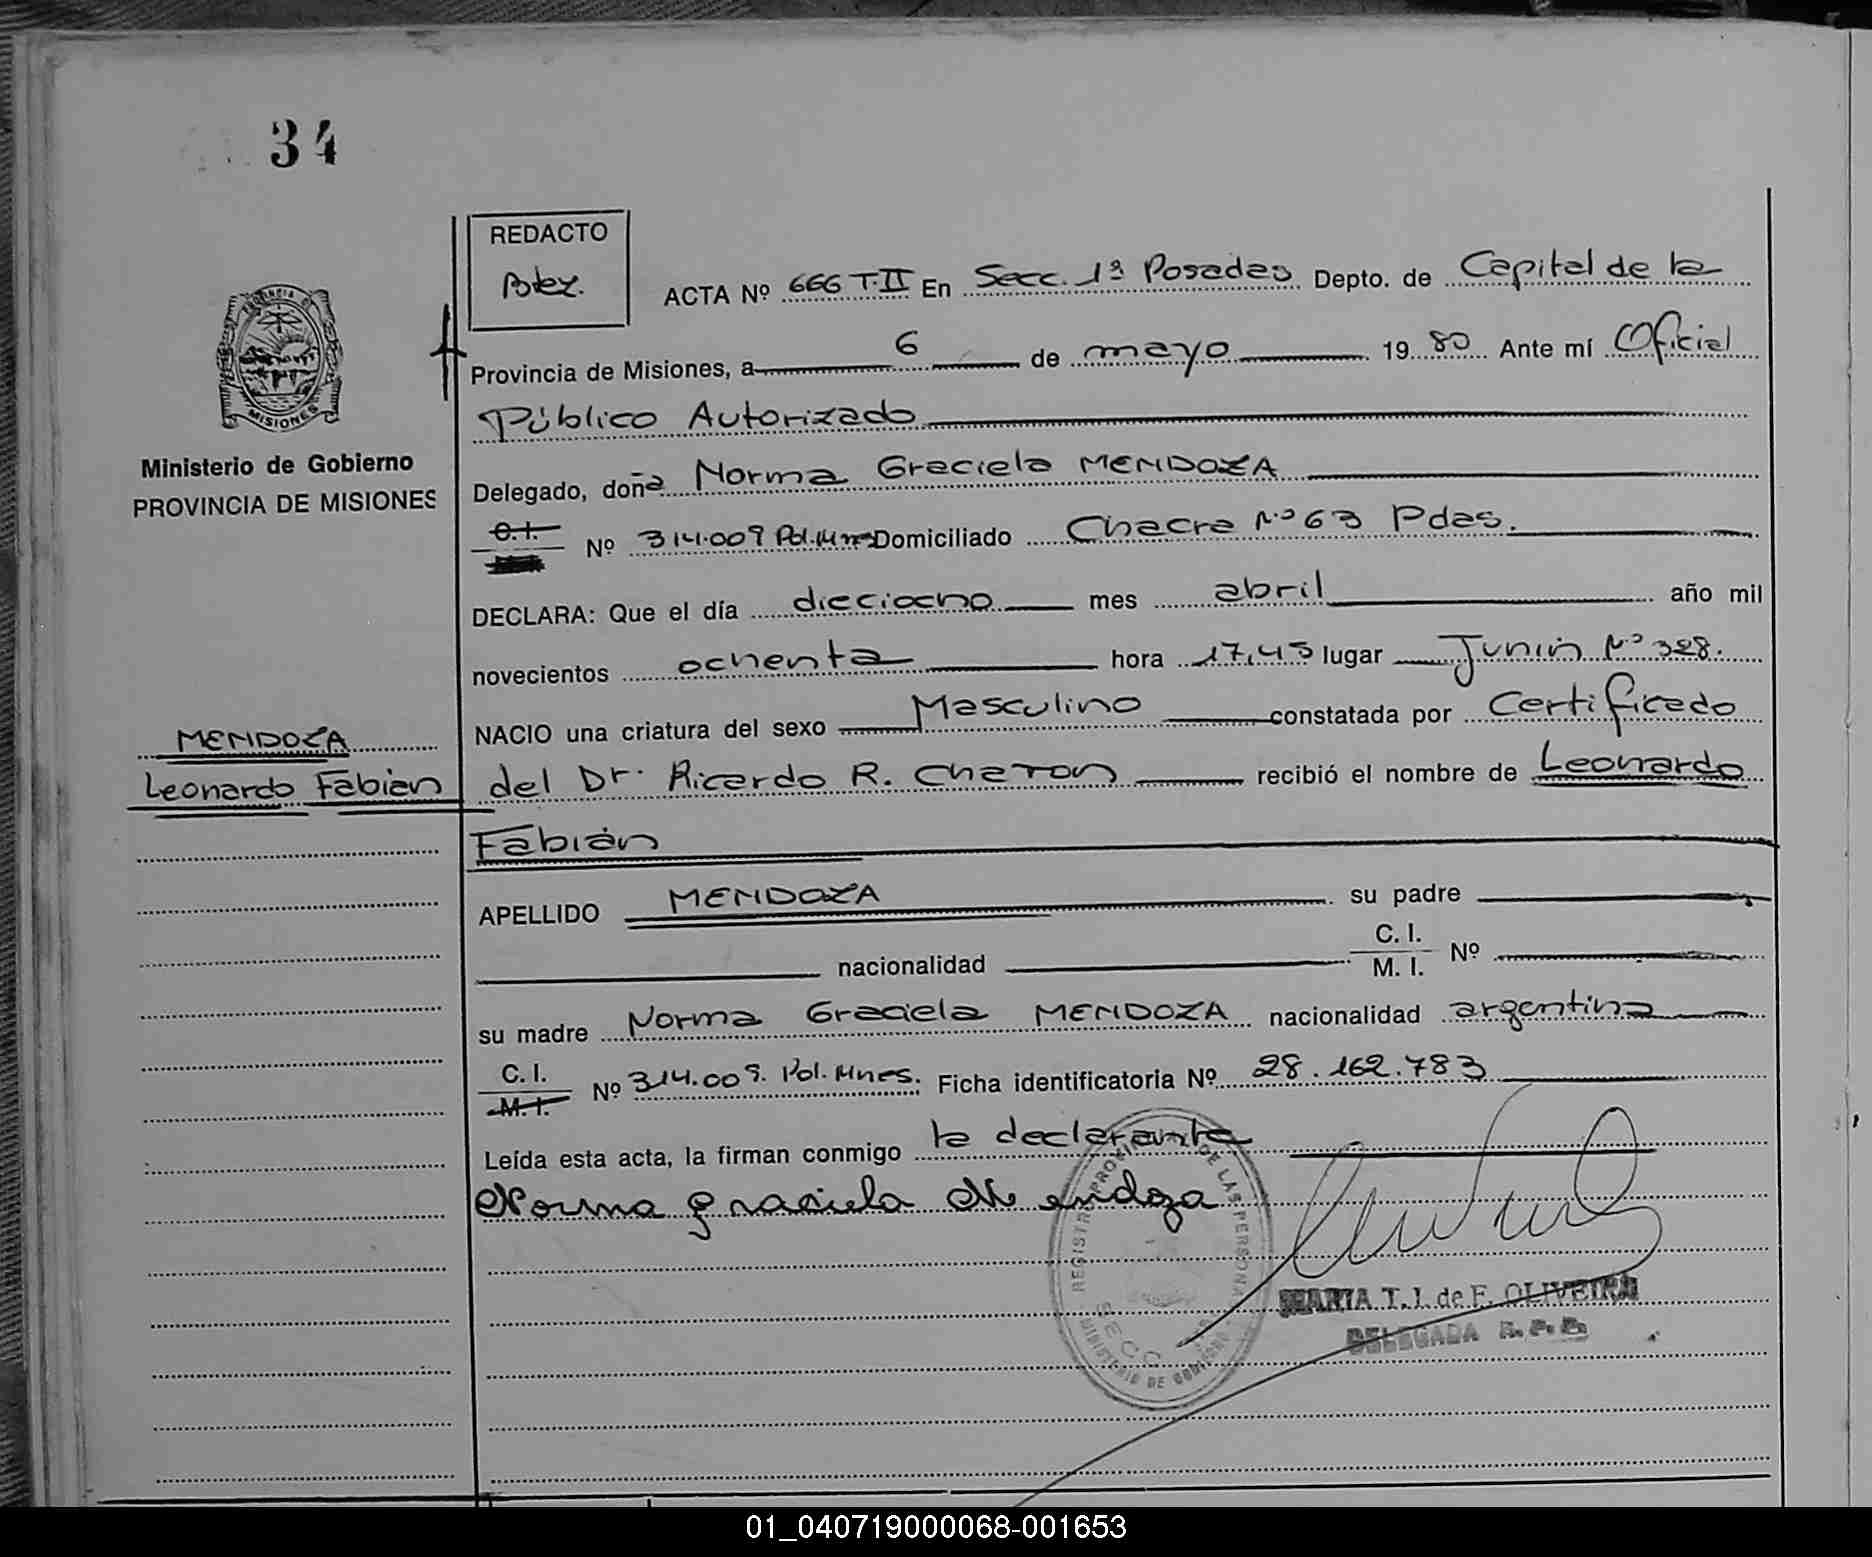 34
REDACTO
ACTA Nº 666 T.II En Secc. 1ª Posadas Depto. de Capital de la
Provincia de Misiones, a 6 de mayo 1980 Ante mí Oficial
Público Autorizado
Delegado, doña Norma Graciela MENDOZA
C.I. Nº 314.009 Pol. Mnes Domiciliado Chacra Nº 63 Pdas.
DECLARA: Que el día dieciocho mes abril año mil
novecientos ochenta hora 17,45 lugar Junín Nº 328.
NACIO una criatura del sexo Masculino constatada por Certificado
del Dr. Ricardo R. Charon recibió el nombre de Leonardo
Fabián
APELLIDO MENDOZA su padre
nacionalidad C. I. M. I. Nº
su madre Norma Graciela MENDOZA nacionalidad argentina
C. I. M. I. Nº 314.009. Pol. Mnes. Ficha identificatoria Nº 28.162.783
Leída esta acta, la firman conmigo la declarante
Norma graciela Mendoza
MARIA T. J. de F. OLIVEIRA
DELEGADA R. P. P.
REGISTRO PROVINCIAL DE LAS PERSONAS
SECC
MINISTERIO DE GOBIERNO
PROVINCIA DE
MISIONES
Ministerio de Gobierno
PROVINCIA DE MISIONES
MENDOZA
Leonardo Fabian
01_040719000068-001653